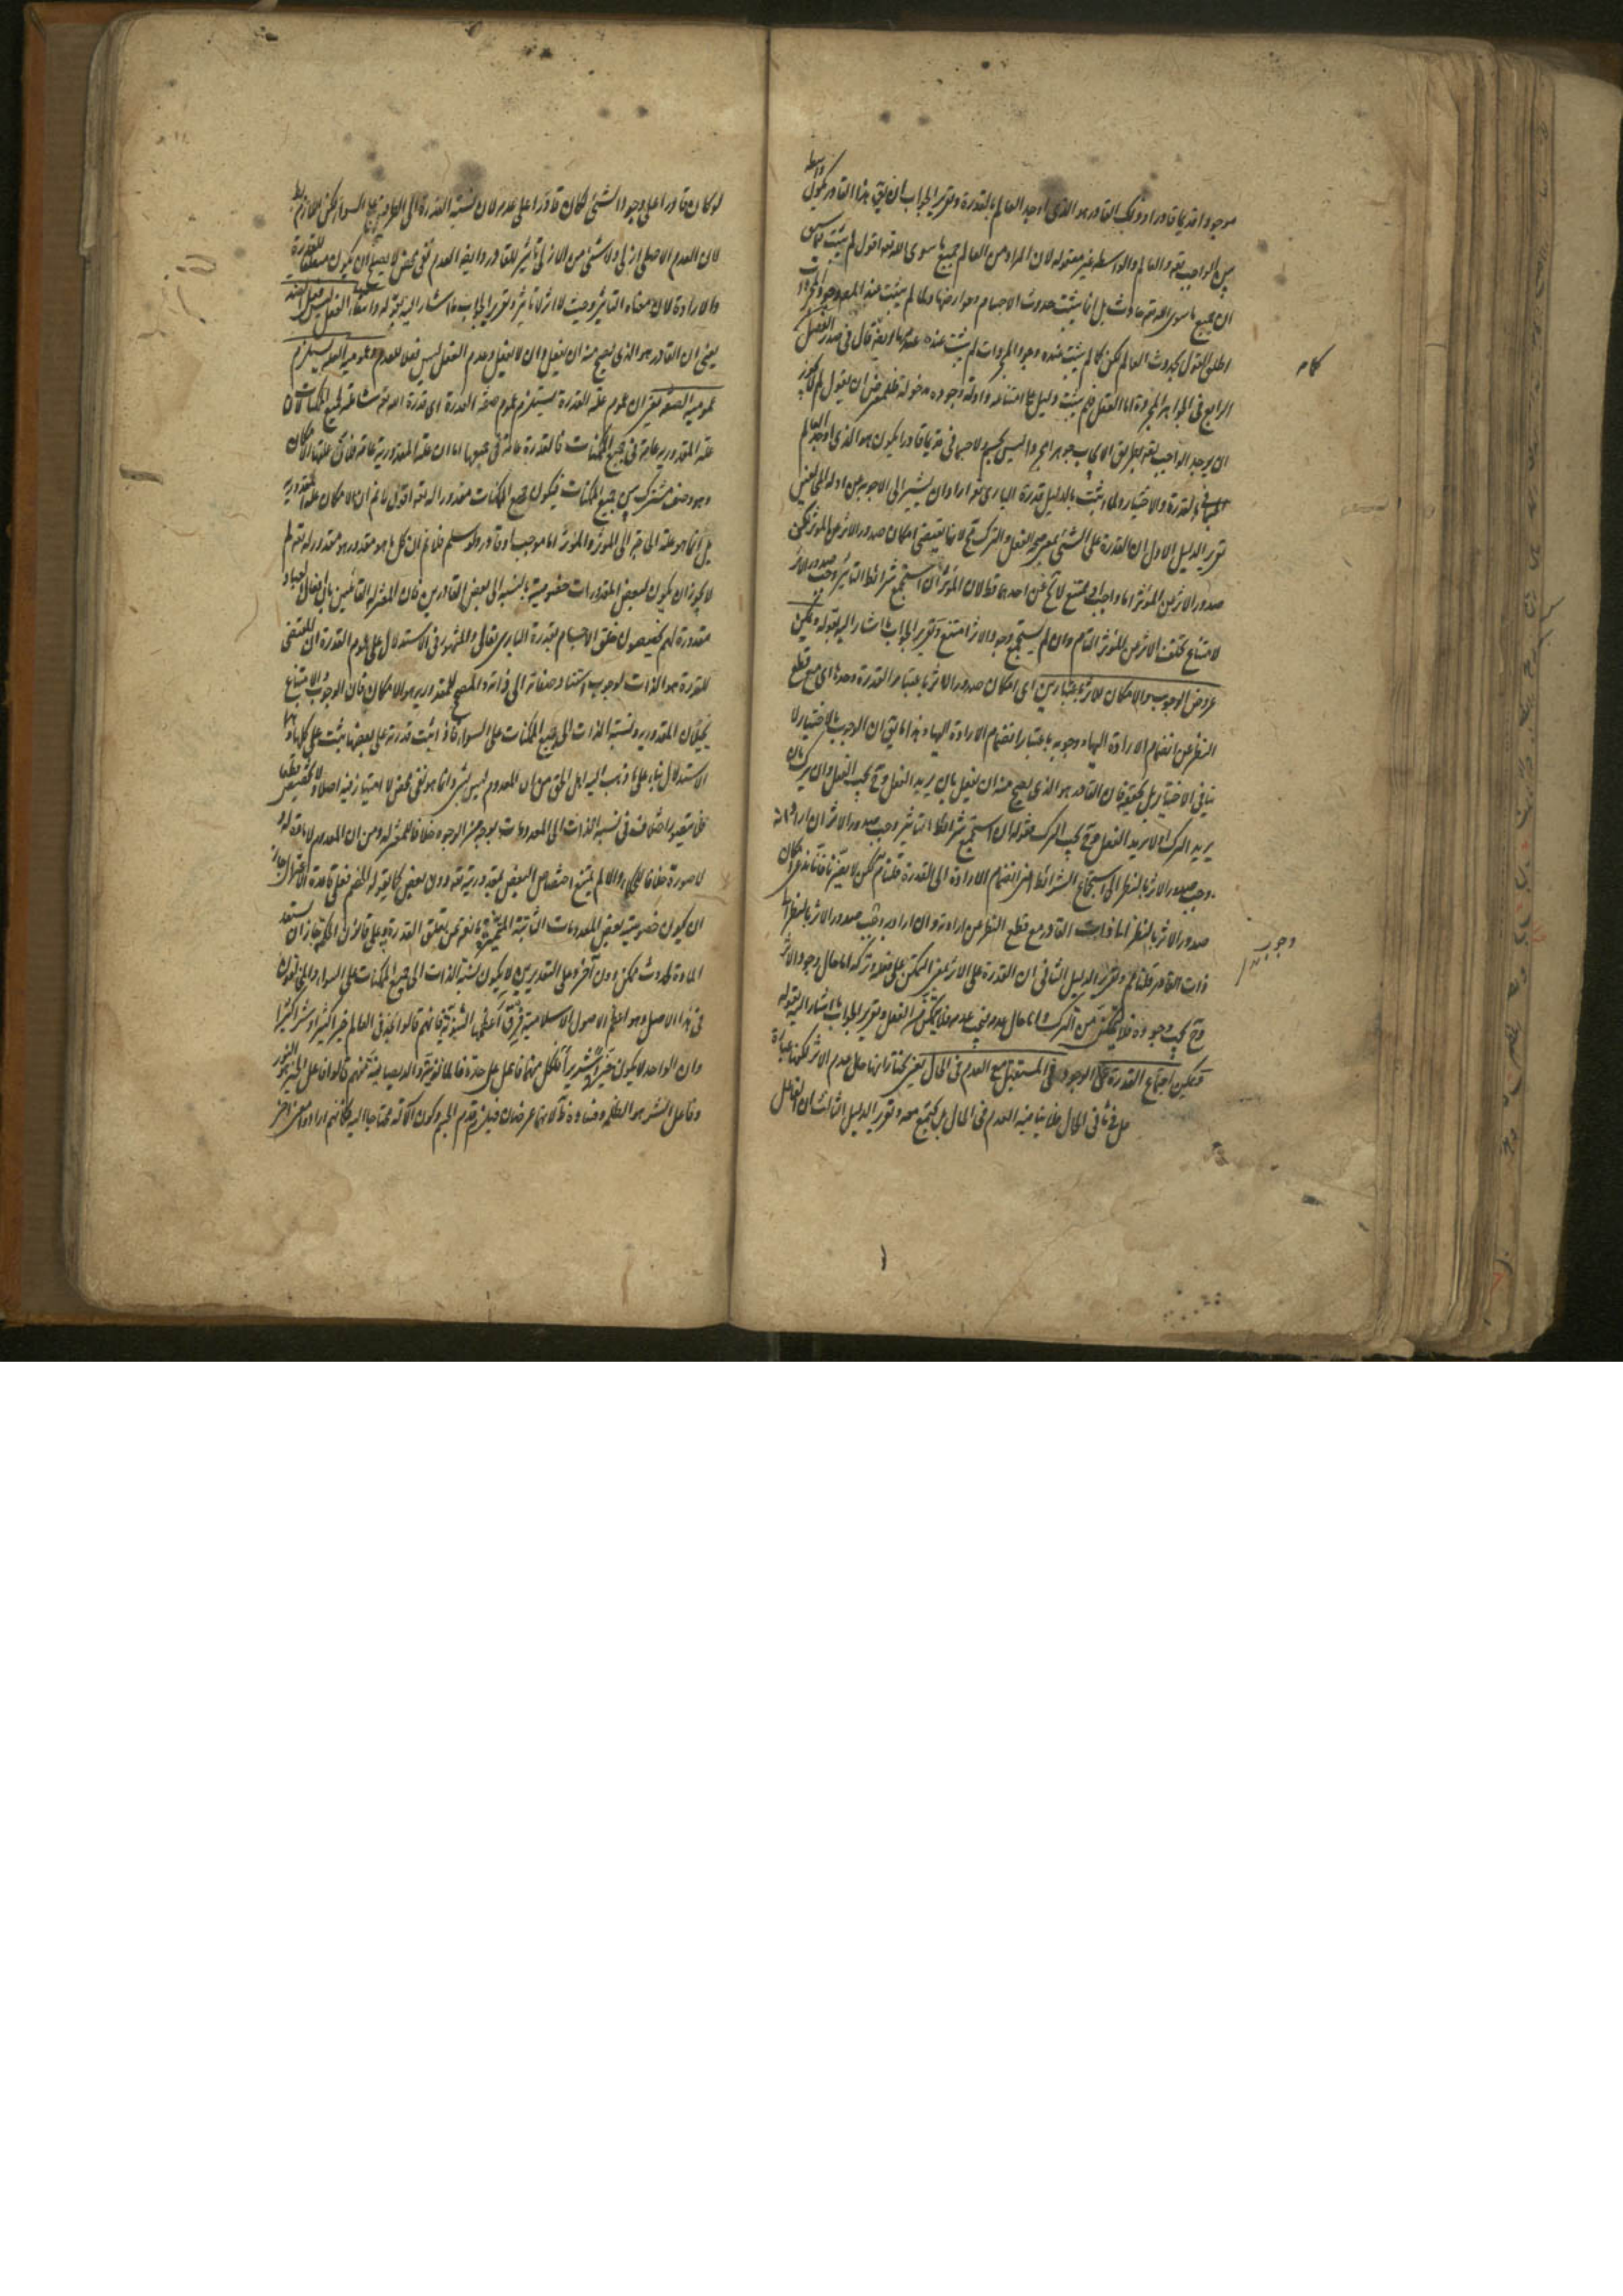 موجودا قديما قادرا وذلك القادر هو الذى اوجد العالم بالقدرة وتقرير الجواب ان يقال هذا القادر يكون واسطة
بين الواجب تعه والعالم والواسطه غير معقوله لان المراد من العالم جميع ما سوى الله تعه اقول لم يثبت مما سبق
ان جميع ما سوى الله تعه حادث بل انما يثبت حدوث الاجسام وعوارضها ولما لم يثبت عند المصه وجود المجردات
اطلق القول بحدوث العالم لكن كما لم يثبت عنده وجود المجردات لم يثبت عنده عدمها وبعه قال فى صدر الفصل
الرابع فى الجواهر المجردة اما العقل فلم يثبت دليل على امتناعه وادلة وجوده مدخولة فللمعترض ان يقول لم لا يجوز
ان يوجد الواجب تعه بطريق الايجاب جوهرا مجردا ليس بجسم ولا جسمانى قديما قادرا يكون هو الذى اوجد العالم
بالقدرة والاختيار ولما اثبت بالدليل قدرة البارى تعه اراد ان يشير الى الاجوبه عن ادلة المخالفين
تقرير الدليل الاول ان القدرة على الشئ بمعنى صحة الفعل والترك مح لانها تقتضى امكان صدور الاثر عن المؤثر لكن
صدور الاثر عن المؤثر اما واجب او ممتنع لا يخ عن احدهما قط لان المؤثر ان استجمع شرائط التأثير وجب صدور الاثر
لامتناع تخلف الاثر عن المؤثر التام وان لم يستجمع وجود الاثر امتنع وتقرير الجواب ما اشار اليه بقوله ويمكن
عروض الوجوب والامكان للاثر باعتبارين اى امكان صدور الاثر باعتبار القدرة وحدها اى مع قطع
النظر عن انضمام الارادة اليها ووجوبه باعتبار انضمام الارادة اليها وهذا ما يق ان الوجوب بالاختيار لا
ينافى الاختيار بل يحققه فان القادر هو الذى يصح منه ان يفعل بان يريد الفعل وح يجب الفعل وان يترك بان
يريد الترك او لا يريد الفعل وح يجب الترك فقوله ان استجمع شرائط التأثير وجب صدور الاثر ان اراد انه
وجب صدور الاثر بالنظر الى استجماع الشرائط اعنى انضمام الارادة الى القدرة قلنا نعم لكن لا يضرنا فاننا ندعى امكان
صدور الاثر بالنظر الى ذات القادر مع قطع النظر عن ارادته وان اراد وجب صدور الاثر بالنظر الى
ذات القادر قلنا لا نم وتقرير الدليل الثانى ان القدرة على الاثر بمعنى التمكن على فعله وتركه اما حال وجود الاثر
وح يجب وجوده فلا يتمكن من الترك واما حال عدمه فيجب عدمه فلا يتمكن من الفعل وتقرير الجواب ما اشار اليه بقوله
ويمكن اجتماع القدرة على الوجود فى المستقبل مع العدم فى الحال يعنى نختار انها حال عدم الاثر لكنها عبارة
فى ثانى الحال فلا ينافيه العدم فى الحال بل يجتمع معه وتقرير الدليل الثالث ان الفاعل
وجوب
لو كان قادرا على وجود الشئ لكان قادرا على عدمه لان نسبة القدرة الى الطرفين على السواء لكن اللازم بط
لان العدم الاصلى ازلى ولا شئ من الازلى تأثير للقادر وايضه العدم نفى محض لا يصلح ان يكون متعلقا للقدرة
والارادة لان معناه التأثير وحيث لا اثر لا تأثير وتقرير الجواب ما اشار اليه بقوله وانتفاء الفعل ليس فعل الضد
يعنى ان القادر هو الذى يصح منه ان يفعل وان لا يفعل وعدم الفعل ليس فعل العدم وعمومية العلة يستلزم
عمومية الصفة يعنى ان عموم علة القدرة يستلزم عموم صفة القدرة اى قدرة الله تعه شاملة لجميع الممكنات لان
علة المقدورية عامة فى جميع الممكنات فالقدرة عامة فى جميعها اما ان علة المقدورية عامة فلان علتها الامكان
وهو وصف مشترك بين جميع الممكنات فيكون جميع الممكنات مقدورا لله تعه اقول لا نم ان الامكان علة المقدورية
بل انما هو علة الى المؤثر والمؤثر اما موجب او قادر ولو سلم فلا نم ان كل ما هو مقدور هو مقدور له تعه لم
لا يجوز ان يكون لبعض المقدورات خصوصية بالنسبة الى بعض القادرين فان المعتزله القائلين بان افعال العباد
مقدورة لهم يخصصون خلق الاجسام بقدرة البارى تعالى والمشهور فى الاستدلال على عموم القدرة ان المقتضى
للقدرة هو الذات لوجوب استناد صفاته الى ذاته والمصحح للمقدوريه هو الامكان فان الوجوب والامتناع
يحيلان المقدوريه ونسبة الذات الى جميع الممكنات على السواء فاذا ثبت قدرته على بعضها ثبت على كلها وهذا
الاستدلال بناء على ما ذهب اليه اهل الحق من ان المعدوم ليس بشئ وانما هو نفى محض لا امتياز فيه اصلا ولا تخصيص قطعا
فلا يتصور اختلاف فى نسبة الذات الى المعدومات بوجه من الوجوه خلافا للمعتزله ومن ان المعدوم لا مادة له و
لا صورة خلافا للحكماء والا لم يمتنع اختصاص البعض بمقدوريته تعه دون بعض كما يقوله الخصم فعلى قاعدة الاعتزال جاز
ان يكون خصوصية بعض المعدومات الثابتة المتميزة مانعه عن تعلق القدرة به وعلى قانون الحكمة جاز ان يستعد
المادة لحدوث ممكن دون آخر وعلى التقديرين لا يكون نسبة الذات الى جميع الممكنات على السواء والمخالفون
فى هذا الاصل وهو اعظم الاصول الاسلامية فرق اعظمها الثنوية فانهم قالوا نجد فى العالم خيرا كثيرا وشرا كثيرا
وان الواحد لا يكون خيرا شريرا فلكل منهما فاعل على حدة فالمانوية والديصانية منهم قالوا فاعل الخير هو النور
وفاعل الشر هو الظلمه وفساده ظ لانهما عرضان فيلزم قدم الجسم وكون الاله محتاجا اليه وكانهم ارادوا معنى اخر